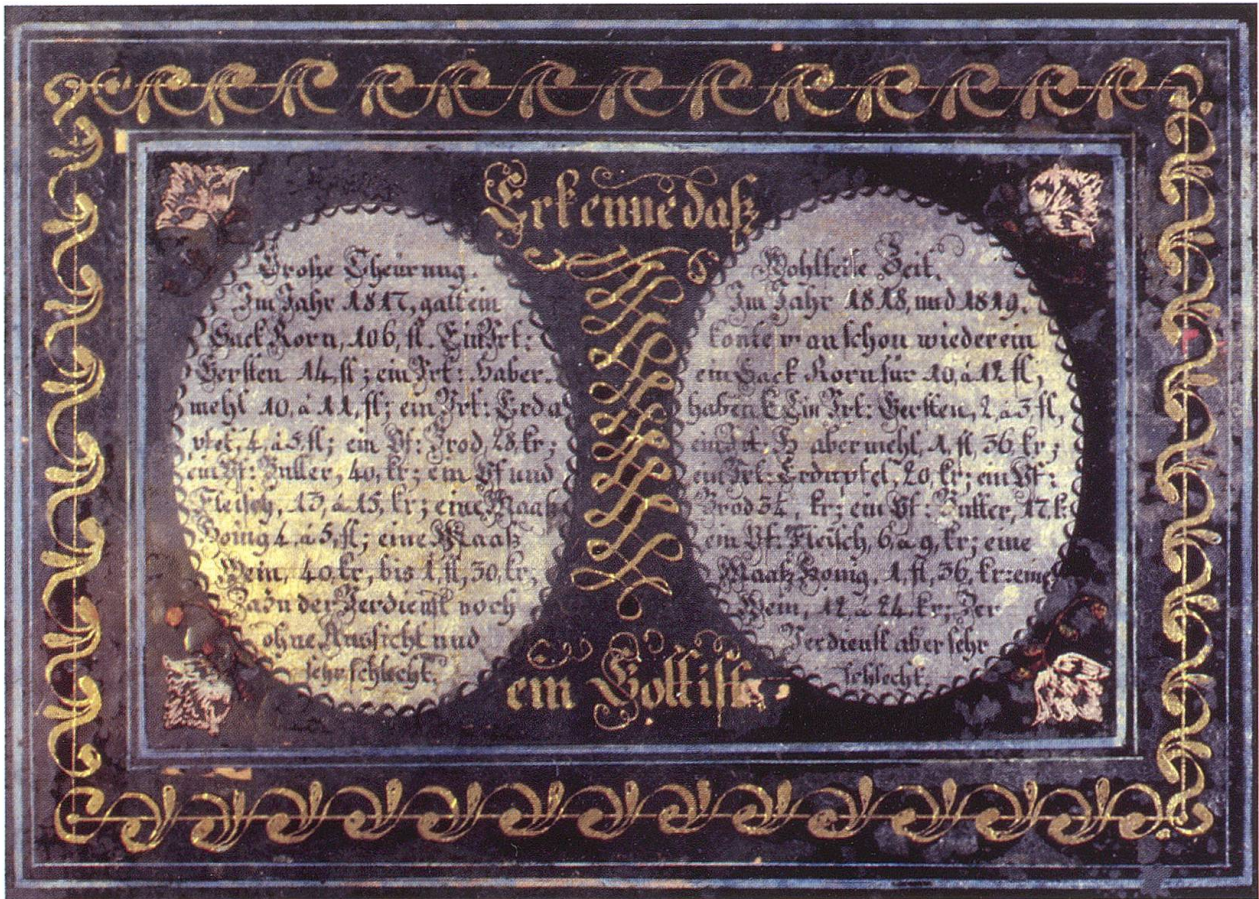 Erkenne daß
Große Theürung.
Im Jahr 1817, galt ein
Sack Korn, 106, fl. Ein Vrt:
Gersten 14, fl; ein Vrt: Haber.
mehl 10, à 11, fl; ein Vrt: Erda
pfel, 4, à 5 fl; ein Pf: Brod, 28 kr;
ein Pf: Butter, 40, kr; ein Pfund
Fleisch, 13, à 15, kr; eine Maaß
Honig 4, à 5, fl; eine Maaß
Wein, 40 kr, bis 1, fl, 30, kr,
der Verdienst noch
ohne Aussicht und
sehr schlecht.
Wohlfeile Zeit.
Im Jahr 1818, und 1819.
konte man schon wieder ein
ein Sack Korn für 10, à 12 fl,
haben. Ein Vrt: Gersten, 2, à 3 fl,
ein Vrt: Habermehl, 1, fl, 36, kr;
ein Vrt: Erdapfel, 20, kr; ein Pf:
Brod, kr; ein Pf: Butter, 17, k:
ein Pf: Fleisch, 6, à 9, kr; eine
Maaß Honig, 1, fl, 36, kr: eine
Wein, 12, à 24, kr; Der
Verdienst aber sehr
schlecht.
ein Gott ist.